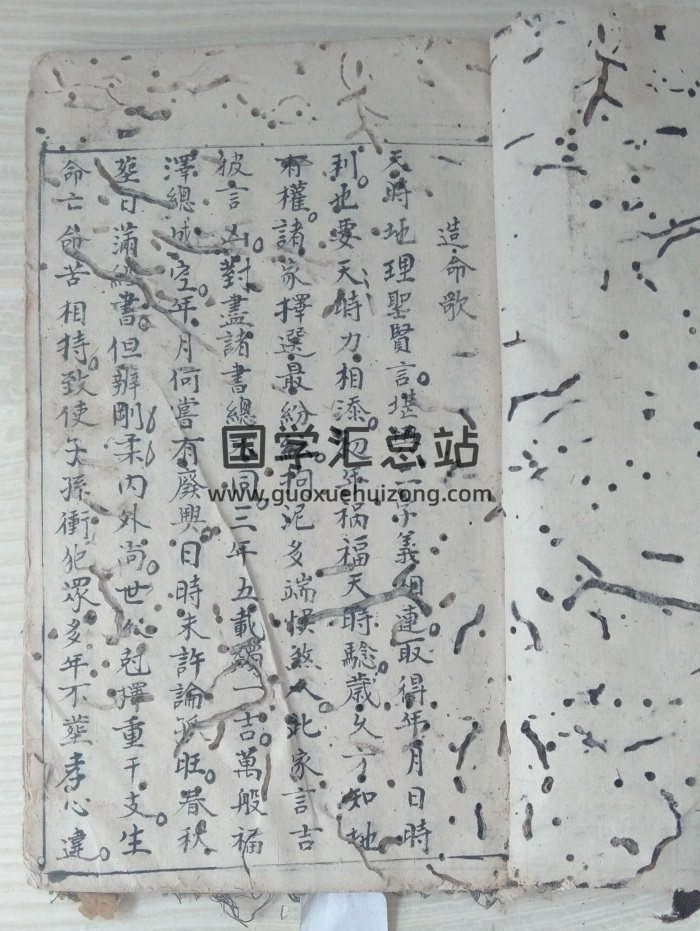 造命歌
天時地理聖賢言。堪字義相連。取得年月日時
利。地要天時力相添。初年禍福天時驗。歲久知地
有權。諸家擇選最紛。拘泥多端悞煞人。此家言吉
彼言凶。對盡諸書總不同。三年五載一吉。萬般福
澤總成空。年月何嘗有廢興日時未許論孤旺。春秋
葬日滿經書。但辨剛柔內外尚。世尅擇重干支。生
命亡命苦相持。致使子孫衝犯眾多年不葬孝心違。
国学汇总站
www.guoxuehuizong.com